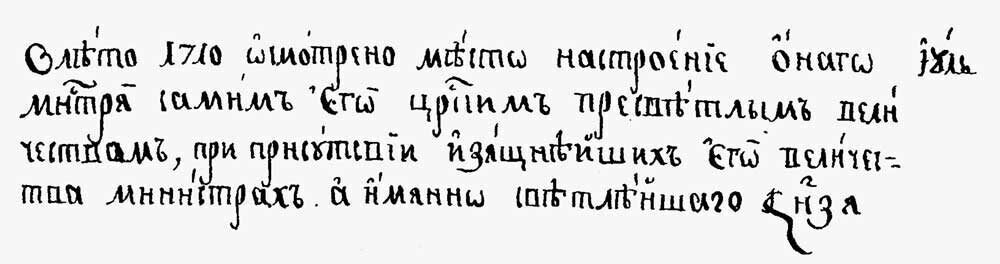 Ѡ лѣ́то 1710 ѡ҆смо́трено мѣ́стѡ настрое́нїе ѻ҆́нагѡ
мн҃стрѧ̀ самимъ є҆гѡ̀ црⷭ҇кимъ пресвѣ́тлымъ вели́
чествамъ, при прису́тствїи и҆зѧ́щнѣйшихъ є҆гѡ̀ вели́чес=
тва мини́страхъ. а҆ и҆́маннѡ свѣтлѣ́йшаго кн҃зѧ